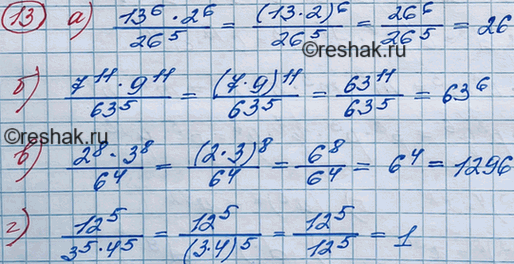 13 а) 13⁶·2⁶/26⁵ = (13·2)⁶/26⁵ = 26⁶/26⁵ = 26
©reshak.ru
б) 7¹¹·9¹¹/63⁵ = (7·9)¹¹/63⁵ = 63¹¹/63⁵ = 63⁶
©reshak.ru
в) 2⁸·3⁸/6⁴ = (2·3)⁸/6⁴ = 6⁸/6⁴ = 6⁴ = 1296
г) 12⁵/3⁵·4⁵ = 12⁵/(3·4)⁵ = 12⁵/12⁵ = 1
©reshak.ru